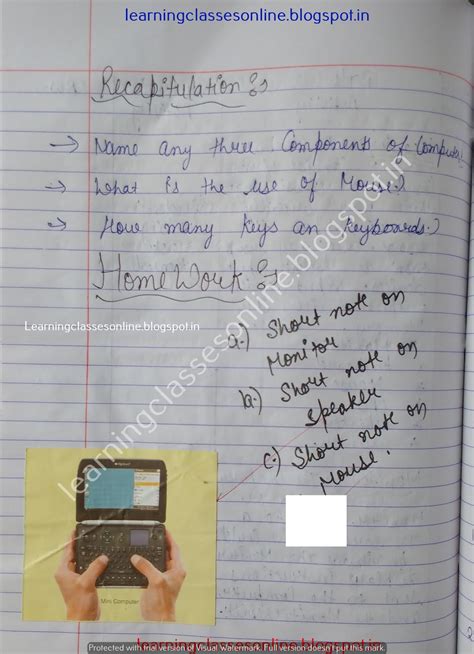 learningclassesonline.blogspot.in
Recapitulation :-
→ Name any three Components of Computer
→ What is the use of Mouse.?
→ How many Keys an Keyboards.?
Home Work :-
Learningclassesonline.blogspot.in
a.) Short note on
Monitor
b.) Short note on
Speaker
c.) Short note on
Mouse.
learningclassesonline.blogspot.in
Mini Computer
learningclassesonline.blogspot.in
Protected with trial version of Visual Watermark. Full version doesn't put this mark.